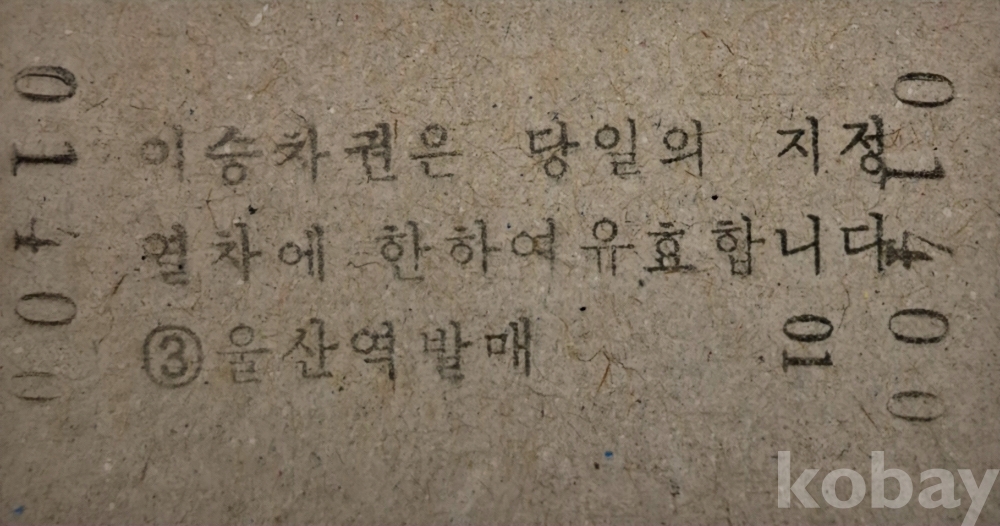 이승차권은 당일의 지정
열차에 한하여유효합니다
③울산역발매
01400
01400
01
kobay